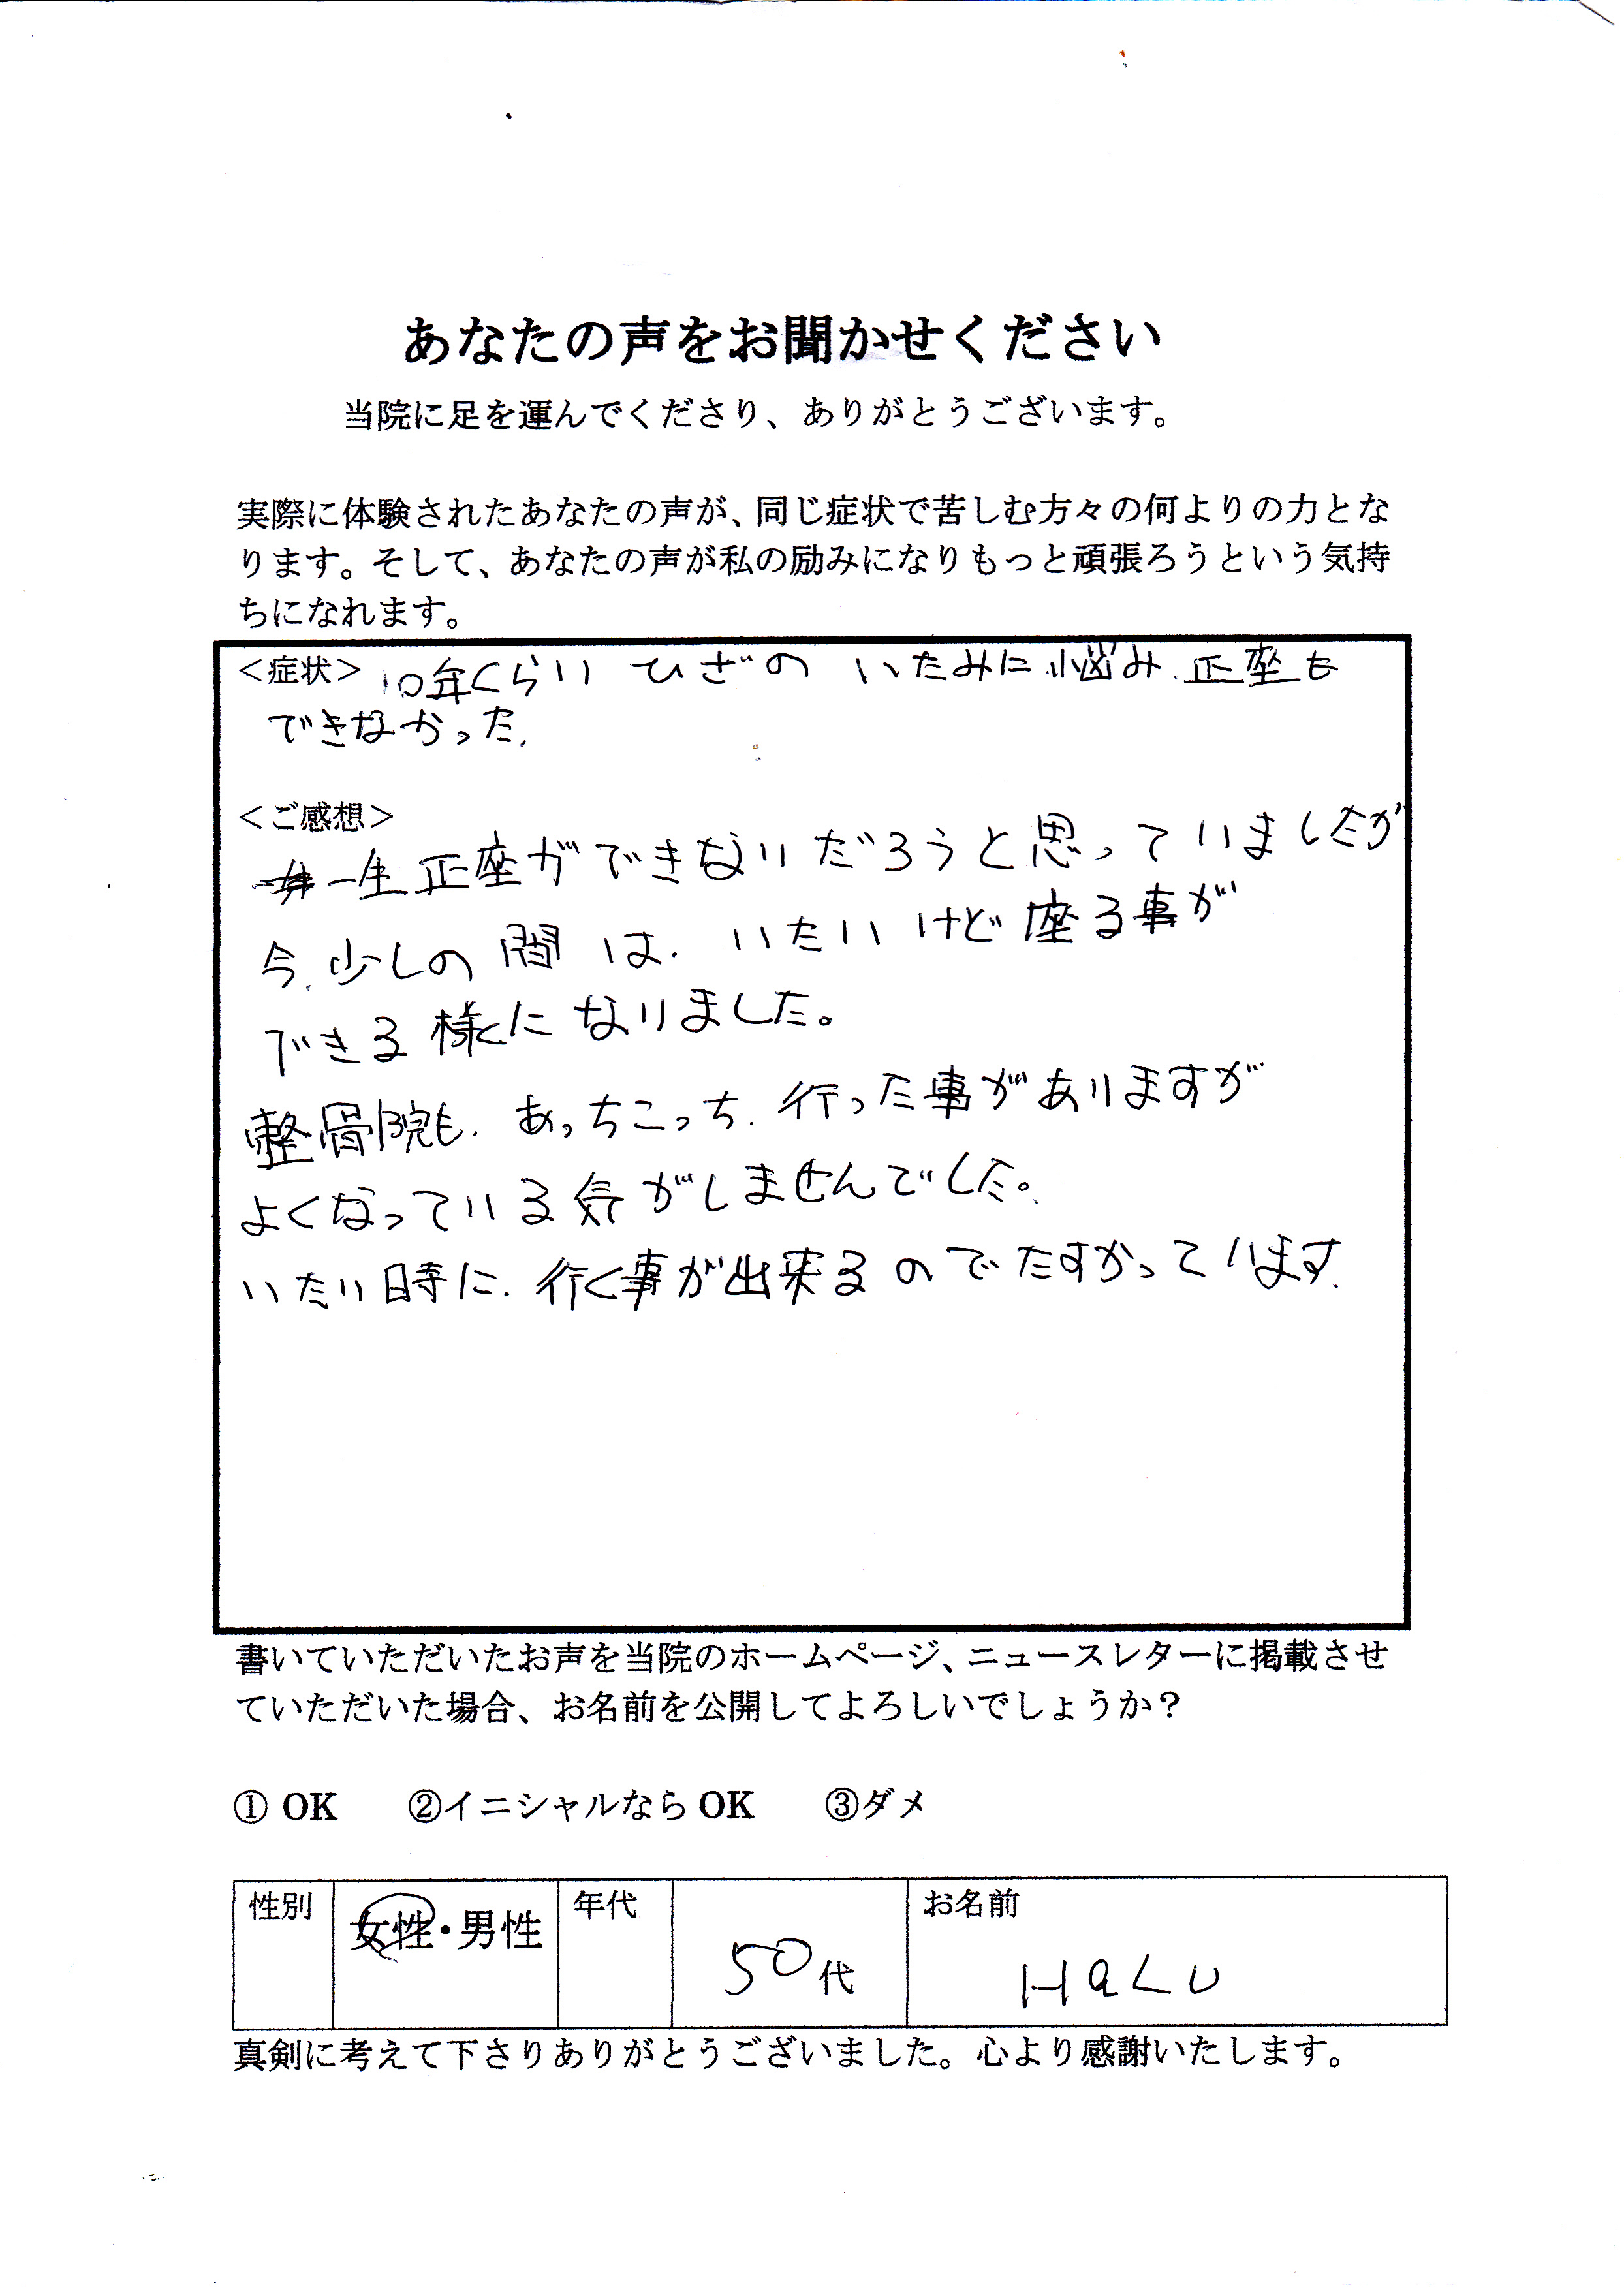 あなたの声をお聞かせください
当院に足を運んでくださり、ありがとうございます。
実際に体験されたあなたの声が、同じ症状で苦しむ方々の何よりの力とな
ります。そして、あなたの声が私の励みになりもっと頑張ろうという気持
ちになれます。
＜症状＞ 10年くらい ひざの いたみに悩み.正座も
できなかった.
＜ご感想＞
一生正座ができないだろうと思っていましたが
今.少しの間は.いたいけど座る事が
できる様になりました。
整骨院も.あっちこっち.行った事がありますが
よくなっている気がしませんでした。
いたい時に.行く事が出来るのでたすかっています.
書いていただいたお声を当院のホームページ、ニュースレターに掲載させ
ていただいた場合、お名前を公開してよろしいでしょうか？
① OK ②イニシャルなら OK ③ダメ
性別 女性・男性 年代 50代 お名前 HaLu
真剣に考えて下さりありがとうございました。心より感謝いたします。